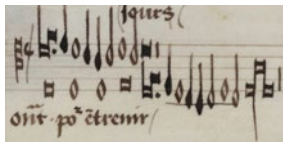 jours
ont po² etrenir